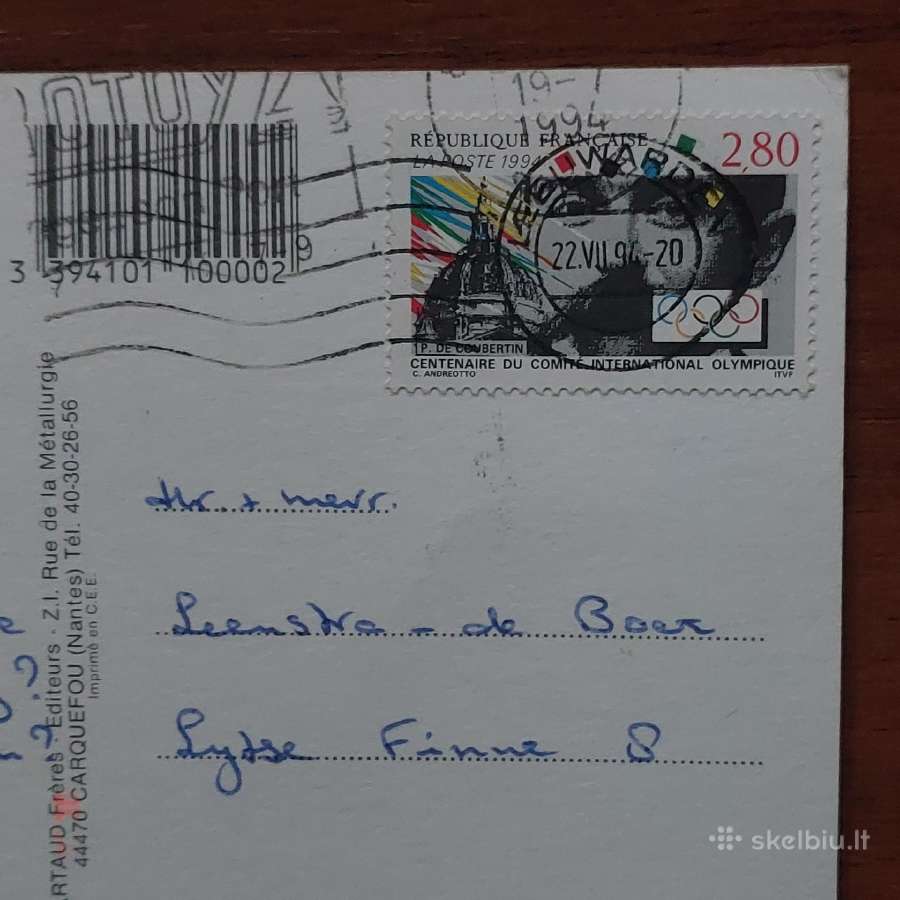 19-7
1994
RÉPUBLIQUE FRANÇAISE
2,80
LA POSTE 1994
22.VII.94.-20
P. DE COUBERTIN
CENTENAIRE DU COMITÉ INTERNATIONAL OLYMPIQUE
C. ANDREOTTO
ITVF
3 394101 100002 9
ARTAUD Frères - Éditeurs - Z.I. Rue de la Métallurgie
44470 CARQUEFOU (Nantes) Tél. 40-30-26-56
Imprimé en C.E.E.
Hr. + mevr.
Leenstra - de Boer
Lytse Finne 8
skelbiu.lt